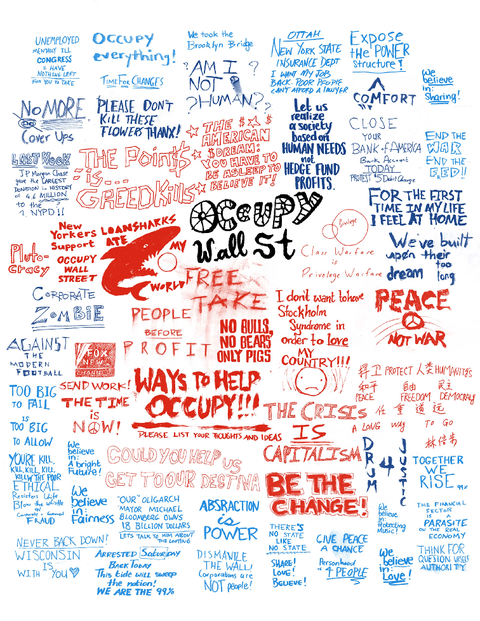 UNEMPLOYED
MENTALLY ILL
CONGRESS
& HAVE
NOTHING LEFT
OCCUPY
everything!
TIME FOR CHANGES
We took the
Brooklyn Bridge
"AM I
NOT
?HUMAN??
OTTAH
NEW YORK STATE
INSURANCE DEPT
I WANT MY JOB
BACK. POOR PEOPLE
CAN'T AFFORD A LAWYER
EXPOSE
the POWER
structure!
COMFORT
We
believe
in:
Sharing!
NO MORE
Cover Ups
PLEASE DON'T
KILL THESE
FLOWERS THANX!
★ THE $★$
★ AMERICAN
★ DREAM:
YOU HAVE TO
BE ASLEEP TO
BELIEVE IT!
Let us
realize
a society
based on
HUMAN NEEDS
not
HEDGE FUND
PROFITS.
CLOSE
YOUR
BANK of AMERICA
Bank Account
TODAY
END THE
WAR
END THE
FED!!
LAST WEEK
JP Morgan Chase
gave the LARGEST
DONATION in HISTORY
of 4.6 MILLION
to the
NYPD!!
THE POINT$
-is...
GREED Kills
OCCUPY
Wall St
FOR THE FIRST
TIME IN MY LIFE
I FEEL AT HOME
Pluto-
cracy
New
Yorkers
Support
OCCUPY
WALL
STREET
LOANSHARKS
ATE
MY
WORLD
Class Warfare
is
Privelage Warfare
We've built
upon their
dream too
long
CORPORATE
ZOMBIE
PEOPLE
BEFORE
PROFIT
FREE
TAKE
NO BULLS,
NO BEARS
ONLY PIGS
I don't want to have
Stockholm
Syndrome in
order to love
MY
COUNTRY!!!
PEACE
NOT WAR
AGAINST
THE
MODERN
FOOTBALL
FOX
NEWS
SEND WORK!
THE TIME
is
NOW!
TOO BIG
TO FAIL
IS
TOO BIG
TO ALLOW
WAYS TO HELP
OCCUPY!!!
PLEASE LIST YOUR THOUGHTS AND IDEAS
THE CRISIS
IS
CAPITALISM
PROTECT 人类 HUMANITIES
和平 自由 民主
PEACE FREEDOM DEMOCRACY
任重道远
A LONG WAY TO GO
YOU'RE KILL
KILL, KILL, KILL,
KILL THE POOR
ETHICAL
Resisters Wife
FRAUD
We
believe
in:
A bright
Future!
COULD YOU HELP US
GET TO OUR DESTINA
BE THE
CHANGE!
DRUM
4
JUSTICE
TOGETHER
WE
RISE
99%
We
believe
in:
Fairness
"OUR" OLIGARCH
MAYOR MICHAEL
BLOOMBERG OWNS
18 BILLION DOLLARS
ABSRACTION
is
POWER
We
believe
in:
Music!
THE FINANCIAL
SECTOR
PARASITE
ON THE REAL
ECONOMY
NEVER BACK DOWN!
WISCONSIN
IS
WITH YOU
ARRESTED Saturday
Back Today
This tide will sweep
the nation!
WE ARE THE 99%
DISMANTLE
THE WALL!
Corporations are
NOT people!
THERE'S
NO STATE
LIKE
NO STATE
SHARE!
LOVE!
BELIEVE!
GIVE PEACE
A CHANCE
Personhood
4 PEOPLE
We
believe
in:
Love!
THINK FOR
QUESTION
AUTHORITY